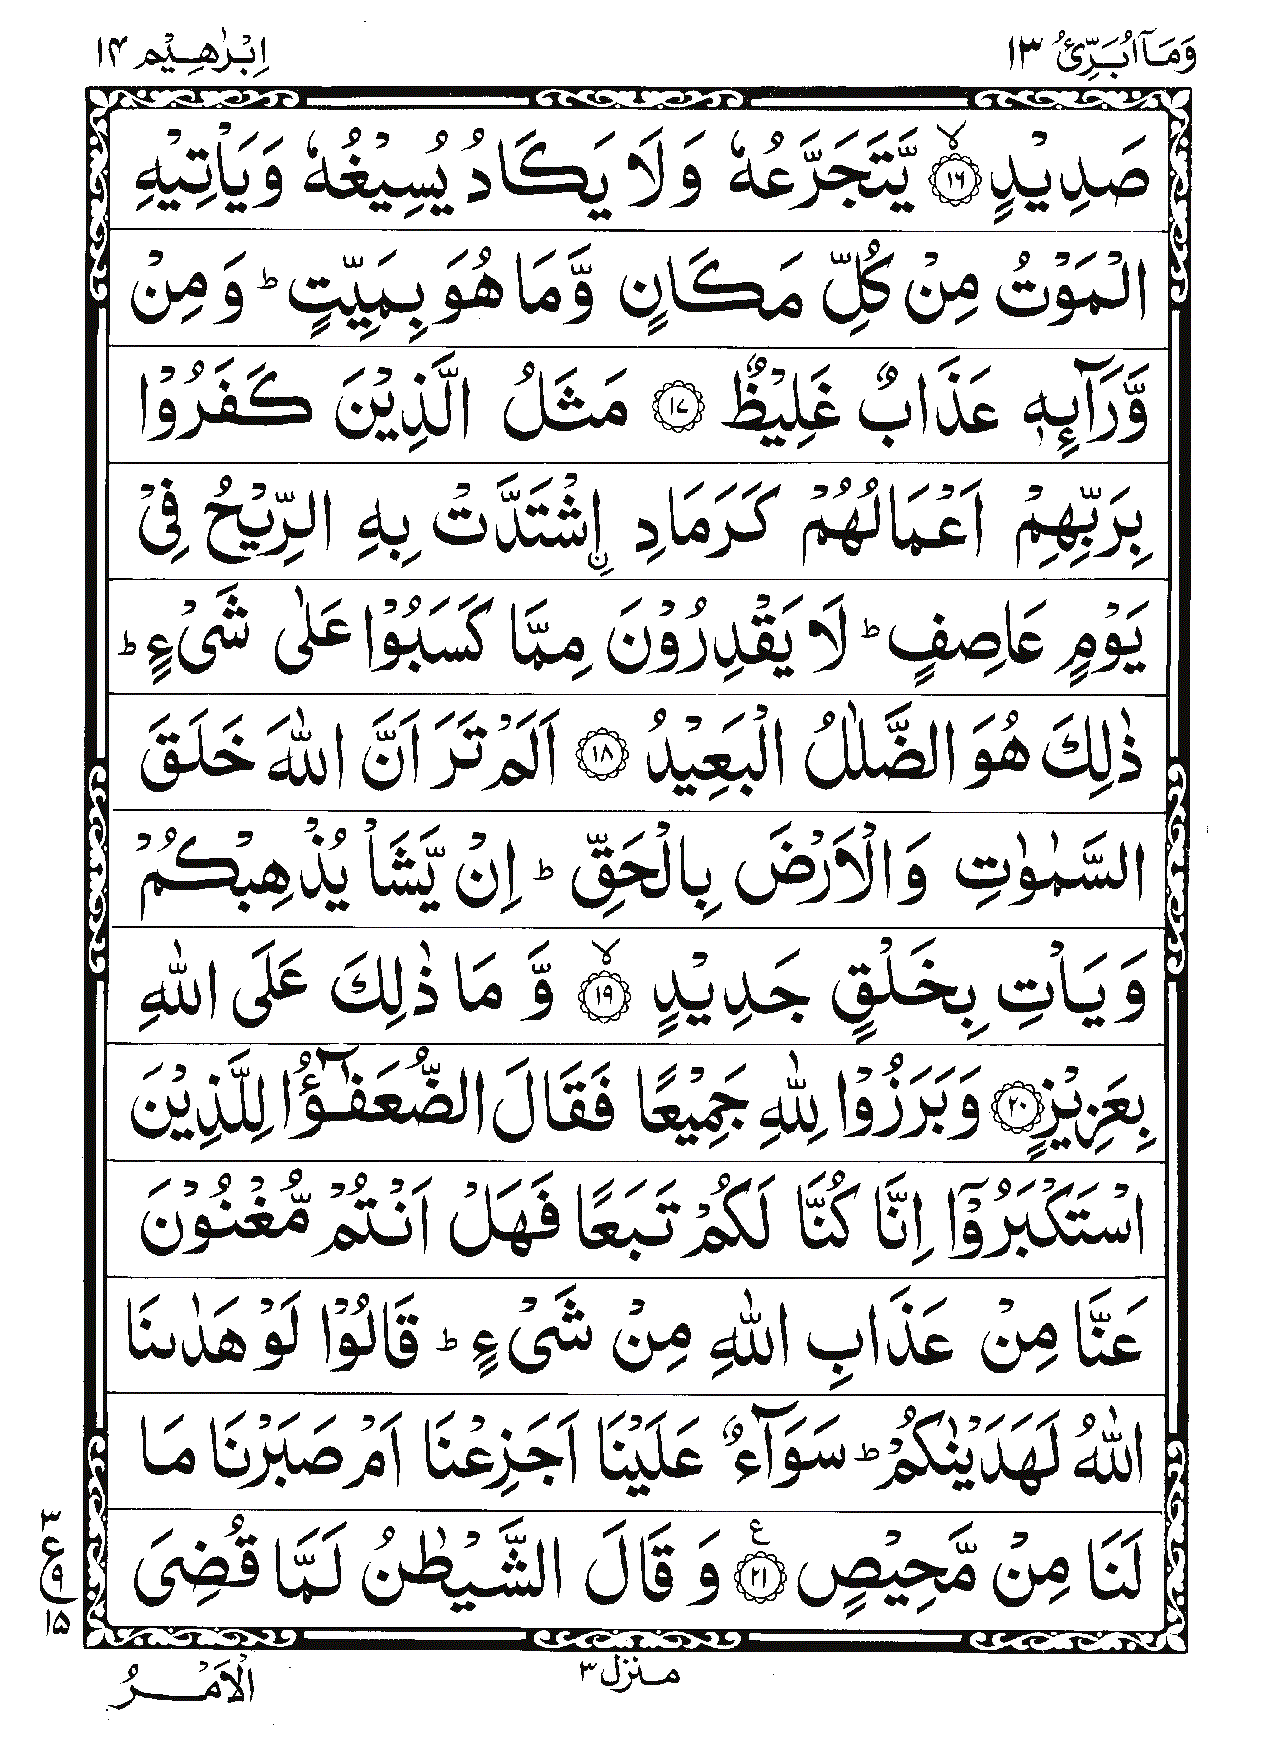 وَمَآ اُبَرِّئُ ١٣
اِبْرٰهِيْم ١٤
صَدِيْدٍ ۙ‏﴿١٦﴾ يَّتَجَرَّعُهٗ وَ لَا يَكَادُ يُسِيْغُهٗ وَيَاْتِيْهِ
الْمَوْتُ مِنْ كُلِّ مَكَانٍ وَّمَا هُوَ بِمَيِّتٍ ؕ وَ مِنْ
وَّرَآئِهٖ عَذَابٌ غَلِيْظٌ ﴿١٧﴾ مَثَلُ الَّذِيْنَ كَفَرُوْا
بِرَبِّهِمْ اَعْمَالُهُمْ كَرَمَادِ ۨاِشْتَدَّتْ بِهِ الرِّيْحُ فِىْ
يَوْمٍ عَاصِفٍ ؕ لَا يَقْدِرُوْنَ مِمَّا كَسَبُوْا عَلٰى شَىْءٍ ؕ
ذٰلِكَ هُوَ الضَّلٰلُ الْبَعِيْدُ ﴿١٨﴾ اَلَمْ تَرَ اَنَّ اللّٰهَ خَلَقَ
السَّمٰوٰتِ وَ الْاَرْضَ بِالْحَقِّ ؕ اِنْ يَّشَاْ يُذْهِبْكُمْ
وَ يَاْتِ بِخَلْقٍ جَدِيْدٍ ۙ﴿١٩﴾ وَّ مَا ذٰلِكَ عَلَى اللّٰهِ
بِعَزِيْزٍ ﴿٢٠﴾ وَبَرَزُوْا لِلّٰهِ جَمِيْعًا فَقَالَ الضُّعَفٰٓؤُا لِلَّذِيْنَ
اسْتَكْبَرُوْٓا اِنَّا كُنَّا لَكُمْ تَبَعًا فَهَلْ اَنْتُمْ مُّغْنُوْنَ
عَنَّا مِنْ عَذَابِ اللّٰهِ مِنْ شَىْءٍ ؕ قَالُوْا لَوْ هَدٰٮنَا
اللّٰهُ لَهَدَيْنٰكُمْ ؕ سَوَآءٌ عَلَيْنَاۤ اَجَزِعْنَاۤ اَمْ صَبَرْنَا مَا
لَنَا مِنْ مَّحِيْصٍ ﴿٢١﴾ ع وَ قَالَ الشَّيْطٰنُ لَمَّا قُضِىَ
٣
ع
٩
١٥
منزل ٣
الْاَمْرُ